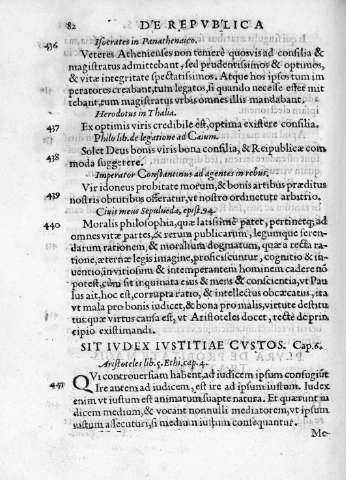 82 DE REPVBLICA
436 Isocrates in Panathenaico.
Veteres Athenienses non temerè quosvis ad consilia &
magistratus admittebant, sed prudentissimos & optimos,
& vitæ integritate spectatissimos. Atque hos ipsos tum im
peratores creabant, tum legatos, si quando necesse esset mit
tebant, tum magistratus vrbis omnes illis mandabant.
Herodotus in Thalia.
437 Ex optimis viris credibile est, optima existere consilia.
Philo lib. de legatione ad Caium.
438 Solet Deus bonis viris bona consilia, & Reipublicæ com
moda suggerere.
Imperator Constantinus ad agentes in rebus.
439 Vir idoneus probitate morum, & bonis artibus præditus
nostris obtutibus offeratur, vt nostro ordinetur arbitrio.
Ciuis meus Sepulueda, epist. 94.
440 Moralis philosophia, quæ latissimè patet, pertinetq; ad
omnes vitæ partes, & rerum publicarum, legumque feren-
darum rationem, & moralium dogmatum, quæ a recta ra-
tione, æternæ legis imagine, proficiscuntur, cognitio & in
uentio, in vitiosum & intemperantem hominem cadere nō
potest, cùm sit inquinata eius & mens & conscientia, vt Pau
lus ait, hoc est, corrupta ratio, & intellectus obcæcatus, ita
vt mala pro bonis iudicet, & bona pro malis, virtute destitu
tus quæ virtus causa est, vt Aristoteles docet, rectè de prin
cipio existimandi.
SIT IVDEX IVSTITIAE CVSTOS. Cap. 6.
Aristoteles lib. 5. Ethi. cap. 4.
441 QVi controuersiam habent, ad iudicem ipsum confugiūt
Ire autem ad iudicem, est ire ad ipsum iustum. Iudex
enim vt iustum est animatum suapte natura. Et quærunt iu
dicem medium, & vocant nonnulli mediatorem, vt ipsum
iustum assecuturi, si medium iustum consequantur.
Me-